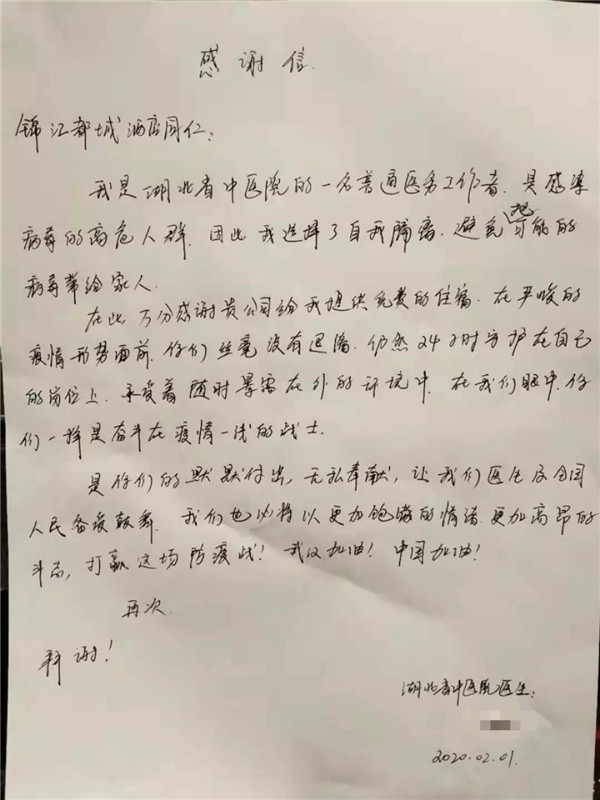 感谢信
锦江都城酒店同仁:
我是湖北省中医院的一名普通医务工作者,是感染
病毒的高危人群,因此我选择了自我隔离,避免把可能的
病毒带给家人.
在此万分感谢贵公司给我提供免费的住宿.在严峻的
疫情形势面前.你们丝毫没有退缩.仍然24小时守护在自己
的岗位上.承受着随时暴露在外的环境中.在我们眼中,你
们一样是奋斗在疫情一线的战士.
是你们的默默付出,无私奉献,让我们医生及全国
人民备受鼓舞.我们也必将以更加饱满的情绪.更加高昂的
斗志,打赢这场防疫战!武汉加油!中国加油!
再次
拜谢!
湖北省中医院医生:
2020.02.01.